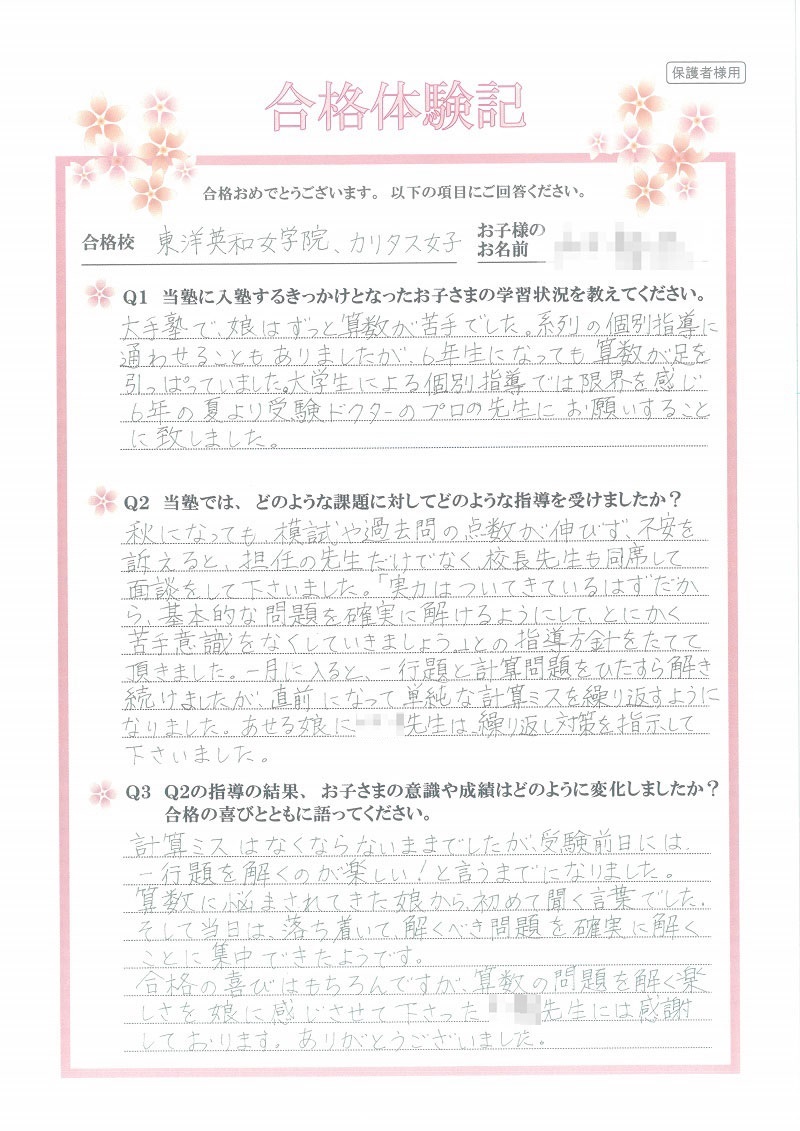 保護者様用
合格体験記
合格おめでとうございます。以下の項目にご回答ください。
合格校 東洋英和女学院、カリタス女子
お子様の
お名前
Q1 当塾に入塾するきっかけとなったお子さまの学習状況を教えてください。
大手塾で、娘はずっと算数が苦手でした。系列の個別指導に
通わせることもありましたが、6年生になっても算数が足を
引っぱっていました。大学生による個別指導では限界を感じ
6年の夏より受験ドクターのプロの先生にお願いすること
に致しました。
Q2 当塾では、どのような課題に対してどのような指導を受けましたか？
秋になっても、模試や過去問の点数が伸びず、不安を
訴えると、担任の先生だけでなく、校長先生も同席して
面談をして下さいました。「実力はついてきているはずだか
ら、基本的な問題を確実に解けるようにして、とにかく
苦手意識をなくしていきましょう。」との指導方針をたてて
頂きました。一月に入ると、一行題と計算問題をひたすら解き
続けましたが、直前になって単純な計算ミスを繰り返すように
なりました。あせる娘に 先生は、繰り返し対策を指示して
下さいました。
Q3 Q2の指導の結果、お子さまの意識や成績はどのように変化しましたか？
合格の喜びとともに語ってください。
計算ミスはなくならないままでしたが、受験前日には、
一行題を解くのが楽しい！と言うまでになりました。
算数に悩まされてきた娘から、初めて聞く言葉でした。
そして当日は、落ち着いて、解くべき問題を確実に解く
ことに集中できたようです。
合格の喜びはもちろんですが、算数の問題を解く楽
しさを娘に感じさせて下さった 先生には感謝
しております。ありがとうございました。